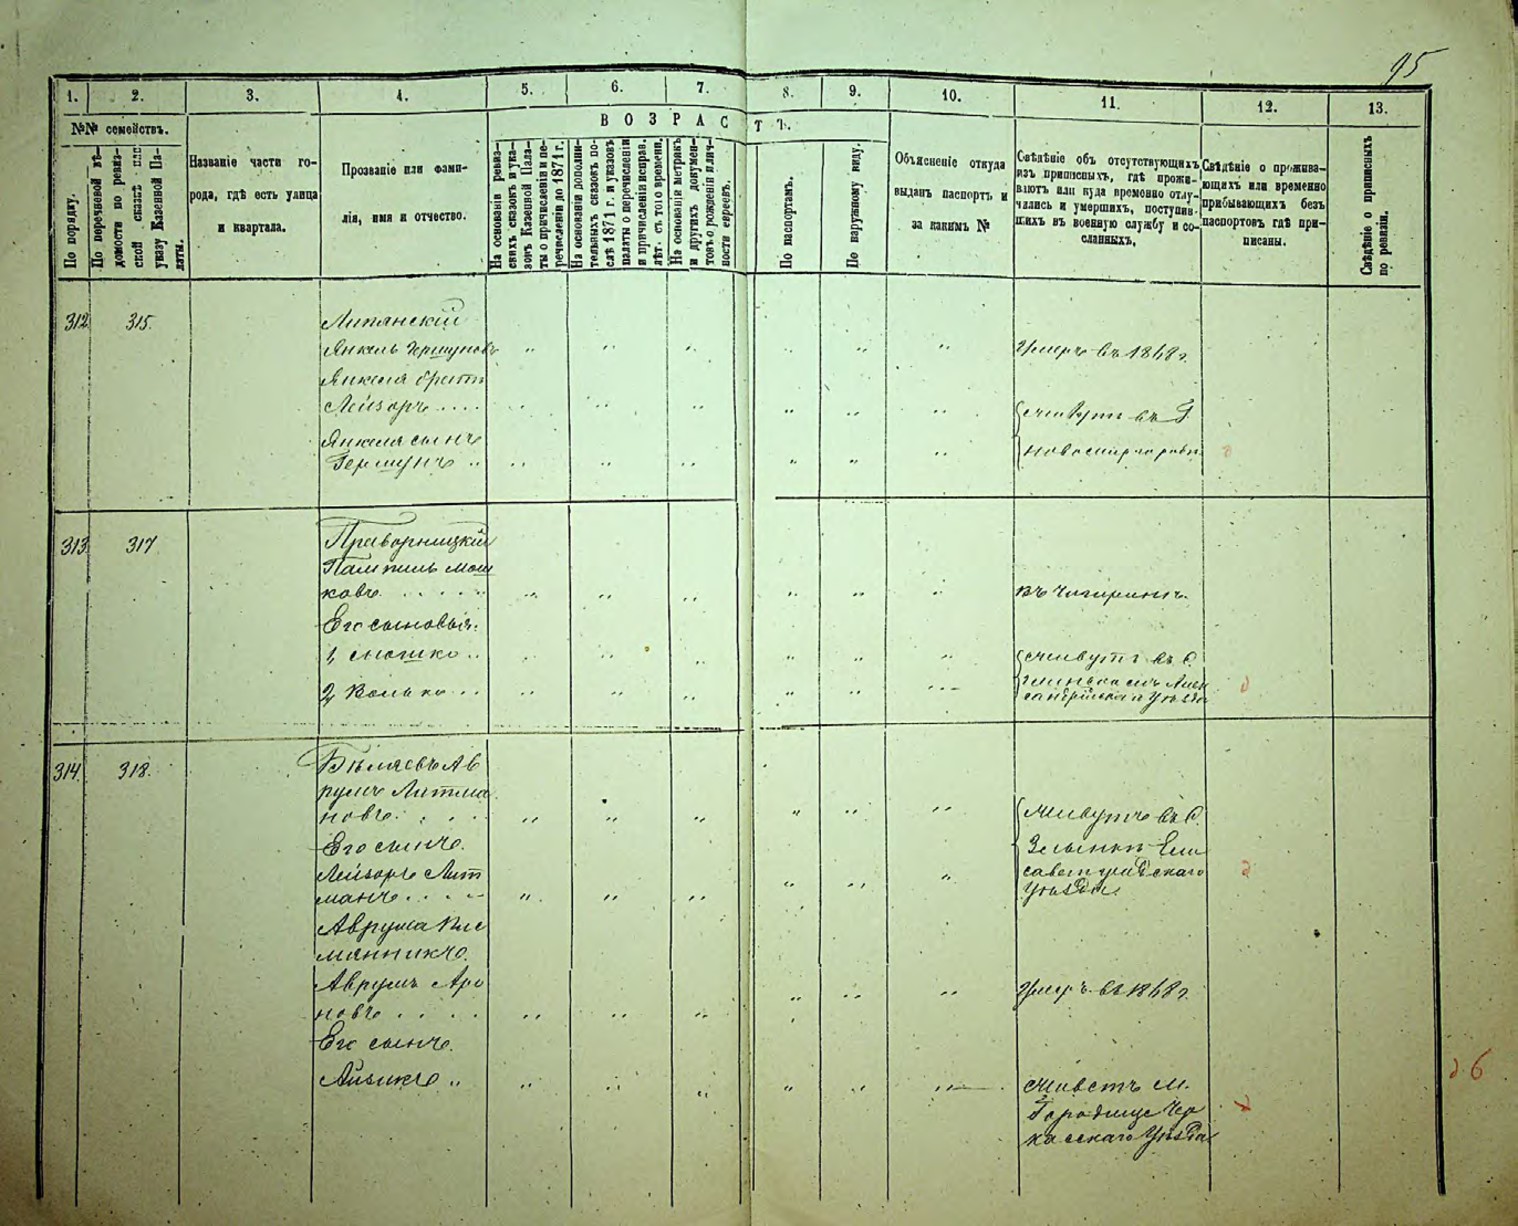 95
1. 2. 3. 4. 5. 6. 7. 8. 9. 10. 11. 12. 13.
№№ семействъ.
ВОЗРАСТЪ.
По порядку.
По перечневой вѣ-
домости по ревиз-
ской сказкѣ или
указу Казенной Па-
латы.
Названіе части го-
рода, гдѣ есть улица
и квартала.
Прозваніе или фами-
лія, имя и отчество.
На основаніи ревиз-
скихъ сказокъ и ука-
зовъ Казенной Пала-
ты о причисленіи и пе-
речисленіи до 1871 г.
На основаніи дополни-
тельныхъ сказокъ по-
слѣ 1871 г. и указовъ
палаты о перечисленіи
и причисленіи исправ.
лѣт. съ того времени.
На основаніи метрикъ
и другихъ докумен-
товъ о рожденіи и лич-
ности евреевъ.
По паспортамъ.
По наружному виду.
Объясненіе откуда
выданъ паспортъ и
за какимъ №
Свѣдѣніе объ отсутствующихъ
изъ приписныхъ, гдѣ прожи-
ваютъ или куда временно отлу-
чились и умершихъ, поступив-
шихъ въ военную службу и со-
сланныхъ.
Свѣдѣніе о прожива-
ющихъ или временно
прибывающихъ безъ
паспортовъ гдѣ при-
писаны.
Свѣдѣніе о приписныхъ
по ревизіи.
312 315.
Янкель Гершуновъ Умеръ въ 1868 г.
Янкеля братъ
Лейзоръ живутъ въ Г.
Янкеля сынъ
Гершунъ Новомиргородѣ
313 317
ковъ въ Чигиринѣ.
Его сыновья:
1, Мошко живутъ въ С.
2, Волько
сандрійскаго Уѣзда
314. 318.
Бѣляевъ Ав
румъ Литма
новъ живутъ въ С.
Его сынъ.
Лейзоръ Лит саветградскаго
манъ Уѣзда.
Аврума пле
мянникъ.
Аврумъ Аро Умеръ въ 1868 г.
новъ
Его сынъ.
Айзикъ живетъ М.
Городище Чер
касскаго Уѣзда
д. 6